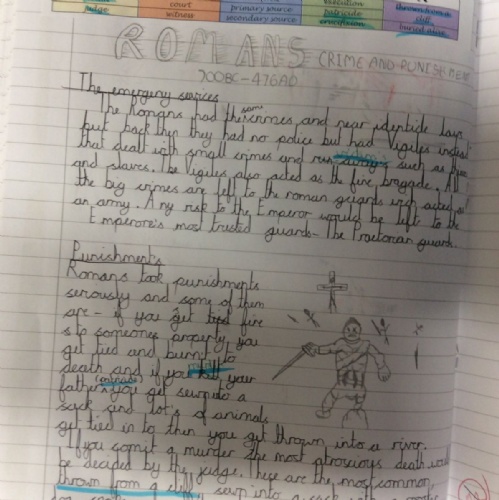 judge court primary source execution thrown from a
witness secondary source patricide cliff
crucifixion buried alive
ROMANS CRIME AND PUNISHMENT
700BC-476AD
The emergency services
The Romans had the same crimes and near identicle laws
but back then they had no police but had Vigiles insted
that dealt with small crimes and such as fires
and slaves. The Vigiles also acted as the fire briggade. All
the big crimes are left to the roman guards wich acted as
an army. Any risk to the Emperor would be left to the
Emperore's most trusted guards- The Praetorian guards.
Punishments
Romans took punishments
seriously and some of them
are- if you set fire
to someones property you
get tied and burnt to
death and if you kill your
father (patricide) you get sewn into a
sack and lot's of animals
get tied in to then you get thrown into a river.
If you comit a murder the most atroscious death will
be decided by the judge. These are the most common,
thrown from a cliff, sewn into a sack